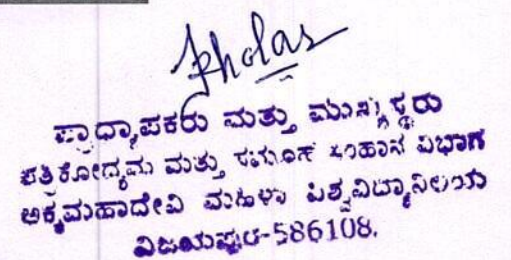 ಪ್ರಾಧ್ಯಾಪಕರು ಮತ್ತು ಮುಖ್ಯಸ್ಥರು
ಪತ್ರಿಕೋದ್ಯಮ ಮತ್ತು ಸಮೂಹ ಸಂವಹನ ವಿಭಾಗ
ಅಕ್ಕಮಹಾದೇವಿ ಮಹಿಳಾ ವಿಶ್ವವಿದ್ಯಾನಿಲಯ
ವಿಜಯಪುರ-586108.